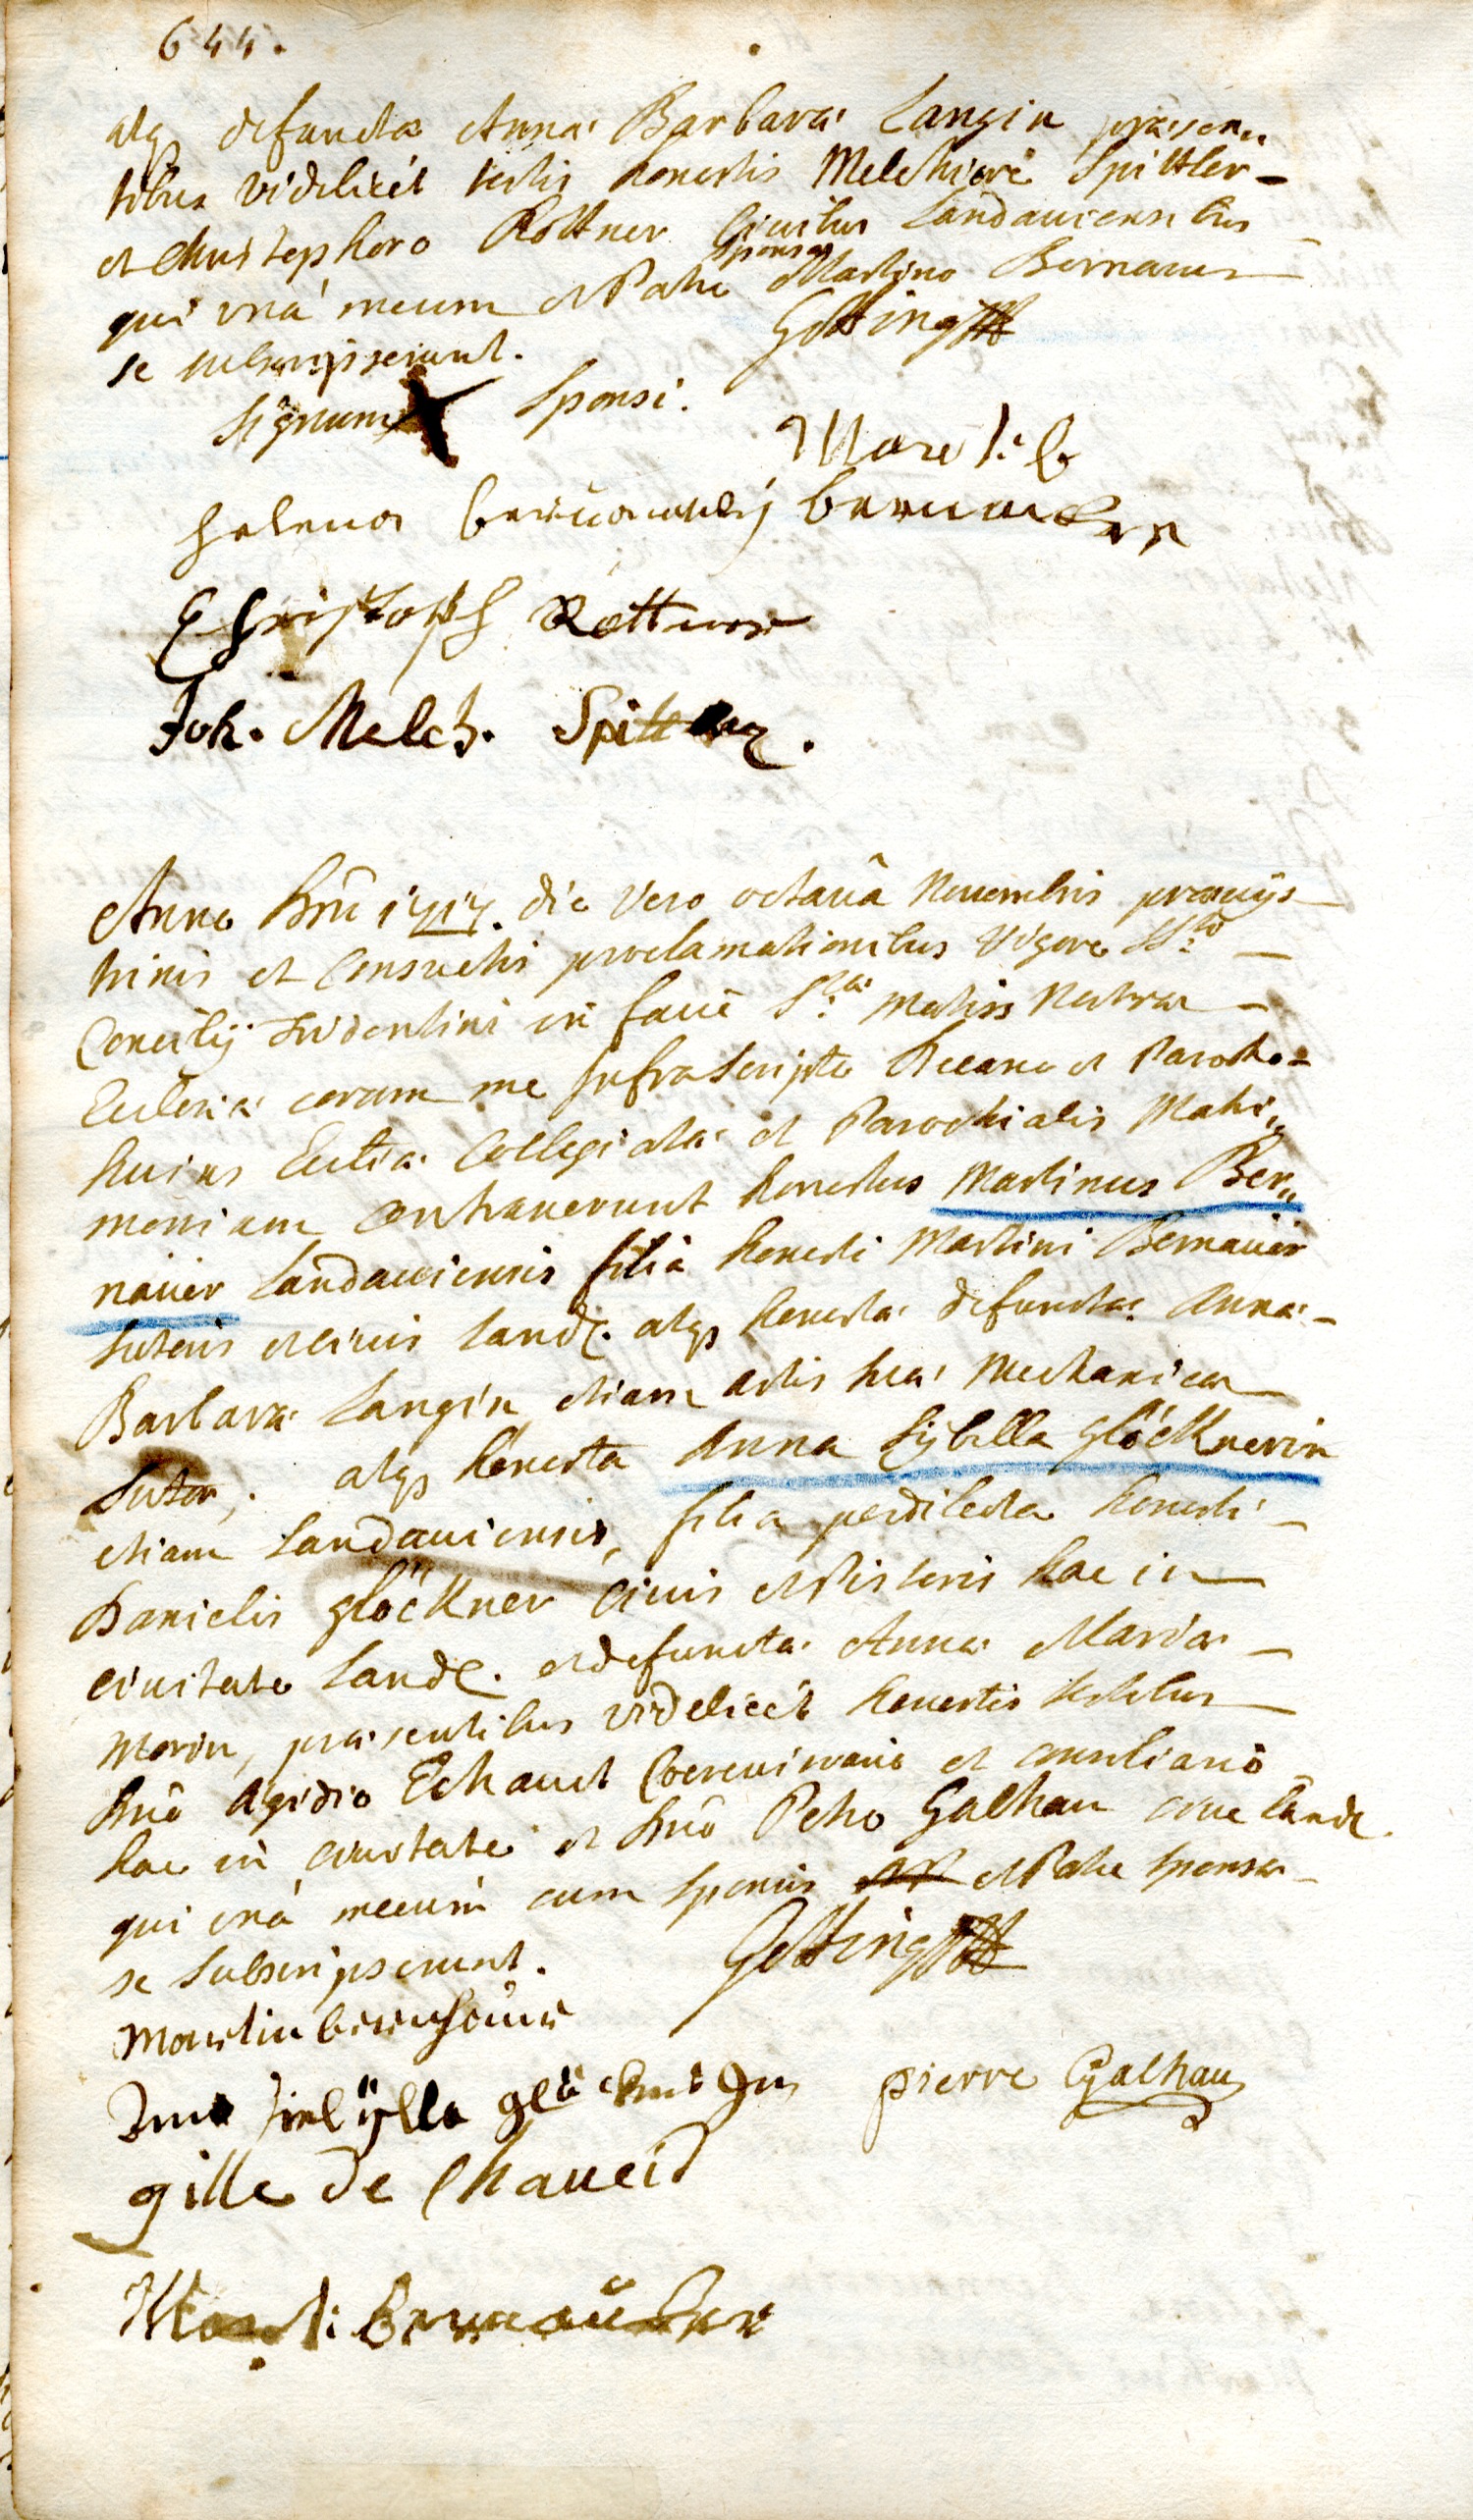 644.
atq3 defunctæ Annæ Barbaræ Langin præsen„
tibus videlicèt testis honestis Melchiore Spittler
et Christophoro Röttner Civibus Landauiensibus
sponsæ
qui unà mecum et Patre Martino Bernauer
se subscripserunt. Götting
Signum X Sponsi.
Mardi b
helena bernauerin bernauer
Christoph Röttner
Joh. Melch. Spittler.
Anno Dnī 1717. die vero octavâ Novembris prævijs
trinis et Consuetis proclamationibus vigore SSti
Concilij Tridentini in facie Stæ Matris Nostræ
Ecclesiæ coram me Infrascripto Decano et Parocho
huius Ecclīæ Collegiatæ et Parochialis Matri„
monium Contraxerunt honestus Martinus Ber„
nauer Landauiensis filiu honesti Martini Bernauer
Sutoris et civis Land. atq3 honestæ defunctæ Annæ
Barbaræ Langin etiam artis suæ Mechanicæ
Sutor, atq3 honesta Anna Sybilla glöcknerin
etiam Landauiensis, filia perdilecta honesti
Danielis glöckner Civis et Pistoris hac in
civitate Land. et defunctæ Annæ Mariæ
Morin, præsentibus videlicèt honestis testibus
Dnō Ægidio Echauet et consiliario
hac in civitate et Dnō Petro Galhau cive Land.
qui unà mecum cum sponsis et Patre sponsæ
se subscripserunt. Götting
Martin bernhauer
Anna sibylla glöcknerin pierre Galhau
gille de Chaueid
Mardi Bernauer